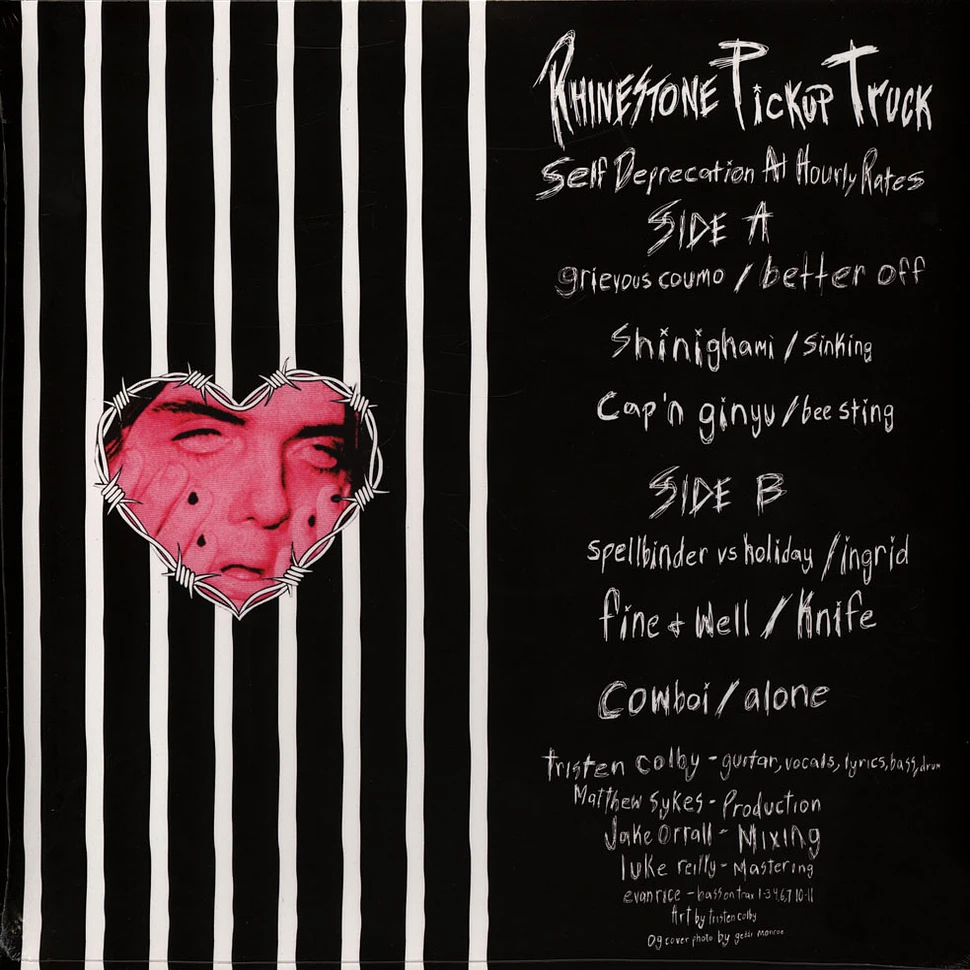 Rhinestone Pickup Truck
Self Deprecation At Hourly Rates
Side A
grievous coumo / better off
Shinighami / Sinking
Cap'n ginyu / bee sting
Side B
spellbinder vs holiday / ingrid
fine + well / Knife
Cowboi / alone
tristen colby - guitar, vocals, lyrics, bass, drum
Matthew Sykes - Production
Jake Orrall - Mixing
luke reilly - Mastering
evan rice - bass on trax 1-3 4,6,7 10-11
Art by tristen colby
Og cover photo by monroe